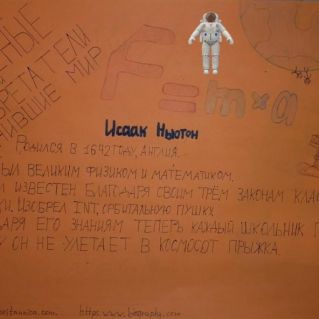 НЫЕ
РЕТАТЕЛИ
ИВШИЕ МИР
F=m×a
Исаак Ньютон
Родился в 1642 году, Англия.
был великим физиком и математиком.
известен благодаря своим трём законам
изобрел INT, орбитальную пушку.
даря его знаниям теперь каждый школьник
он не улетает в космос от прыжка
https.www.biography.com